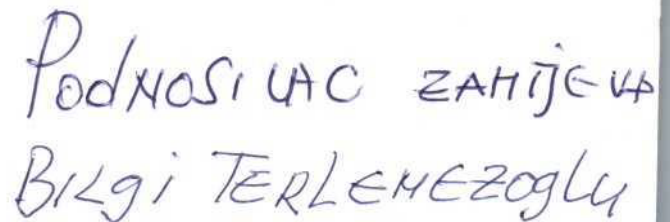 PODNOSILAC ZAHTJEVA
BILGI TERLEMEZOGLU